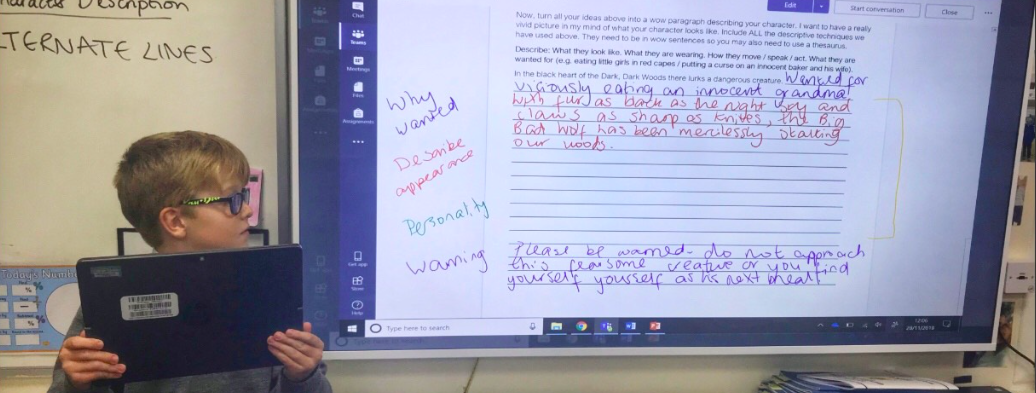 Character Description
ALTERNATE LINES
Today's Numb
%
%
Chat
Teams
Meetings
Files
Assignments
Get app
Store
Help
Edit
Start conversation
Close
Now, turn all your ideas above into a wow paragraph describing your character. I want to have a really
vivid picture in my mind of what your character looks like. Include ALL the descriptive techniques we
have used above. They need to be in wow sentences so you may also need to use a thesaurus.
Describe: What they look like. What they are wearing. How they move / speak / act. What they are
wanted for (e.g. eating little girls in red capes / putting a curse on an innocent baker and his wife).
In the black heart of the Dark, Dark Woods there lurks a dangerous creature. Wanted for
viciously eating an innocent grandma
with fur as back as the night sky and
claws as sharp as knives, the Big
Bad Wolf has been mercilessly stalking
our woods.
Why
wanted
Describe
appearance
Personality
Warning
Please be warned- do not approach
this fearsome creative or you find
yourself yousself as his next meal!
Type here to search
12:06
28/11/2019